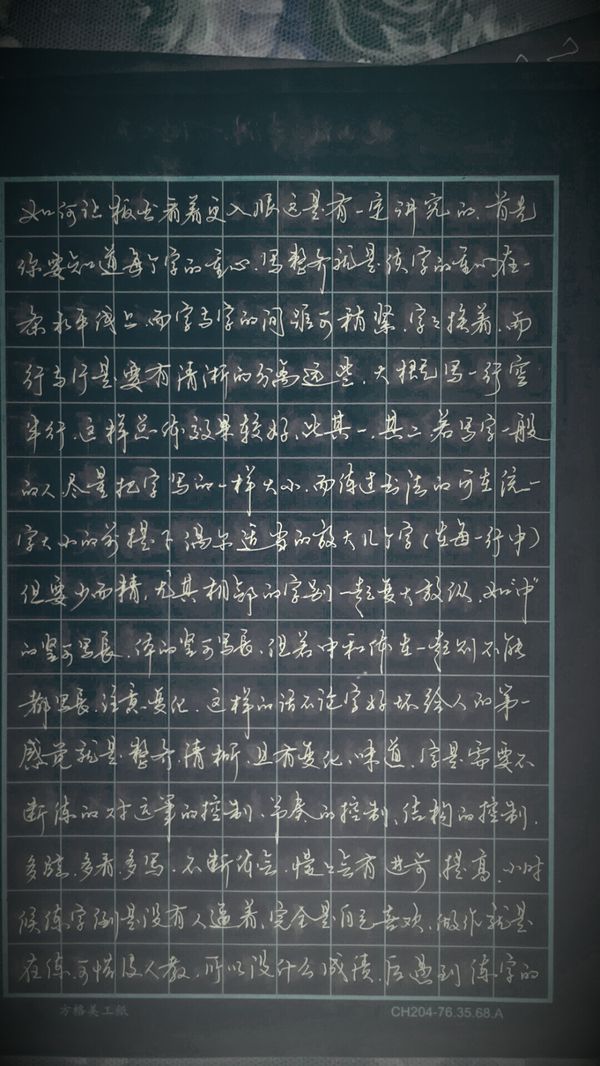 如何让板书看着更入眼这是有一定讲究的.首先
你要知道每个字的重心.写整齐就是使字的重心在一
条水平线上.而字与字的间距可稍紧.字字挨着.而
行与行是要有清淅的分离.大概写一行空
半行.这样总体效果较好.此其一.其二.若写字一般
的人尽量把字写的一样大小.而练过书法的可在统一
字大小的前提下偶尔适当的放大几个字(在每一行中)
但要少而精.尤其相邻的字别一起变大放纵.如"中"
的竖可写长.体的竖可写长.但若中和体在一起则不能
都写长.注意变化.这样的话不论字好坏给人的第一
感觉就是.整齐.清析.且有变化.味道.字是需要不
断练的.对运笔的控制.节奏的控制.结构的控制.
多读.多看.多写.不断体会.慢慢会有进步提高.小时
候练字倒是没有人逼着.完全是自己喜欢.做作就是
在练.可惜没人教.所以没什么成绩.后遇到练字的
方格美工紙
CH204-76.35.68.A